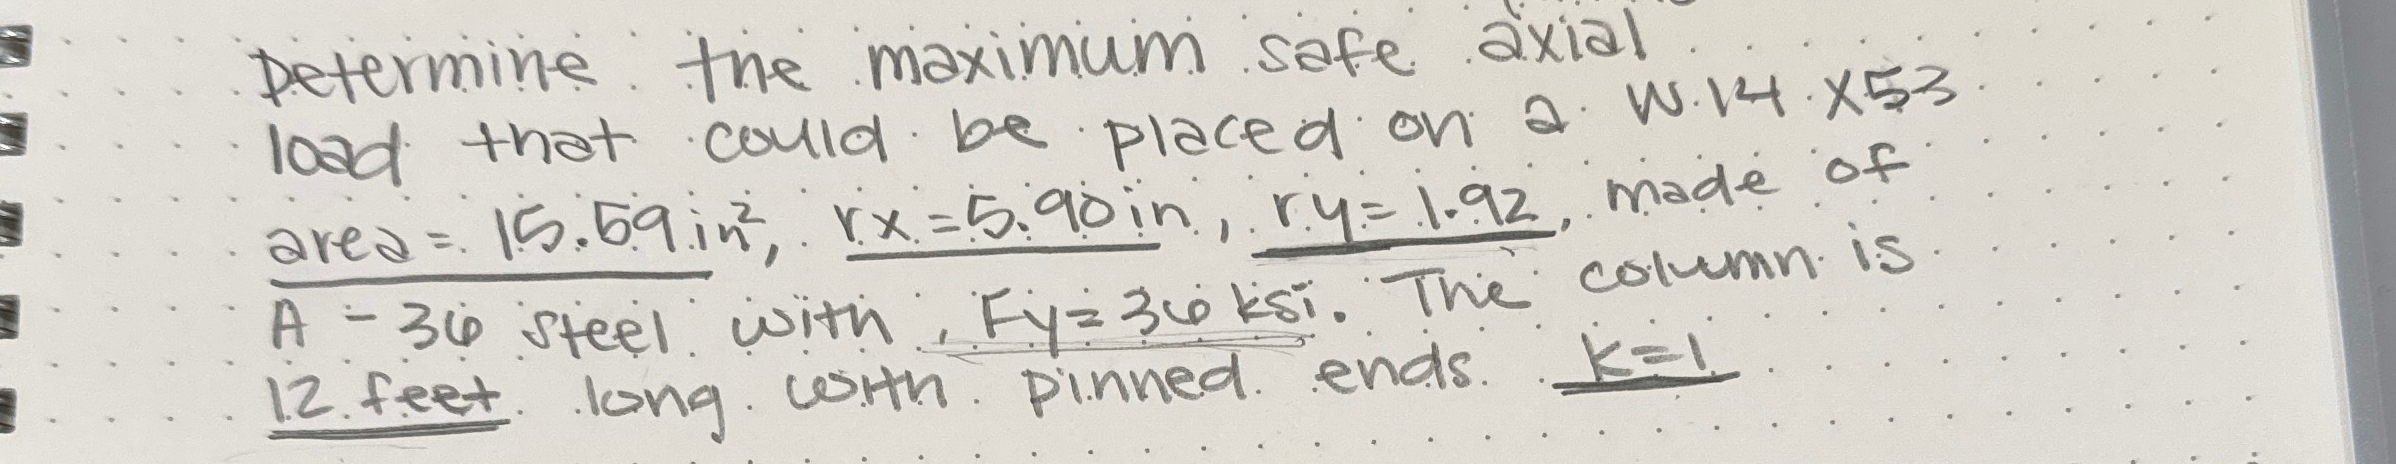 Determine the maximum safe axial
load that could be placed on a W 14 X53
area = 15.59 in², rx = 5.90 in, ry = 1.92, made of
A - 36 steel with Fy = 36 ksi. The column is
12 feet long with pinned ends. K=1